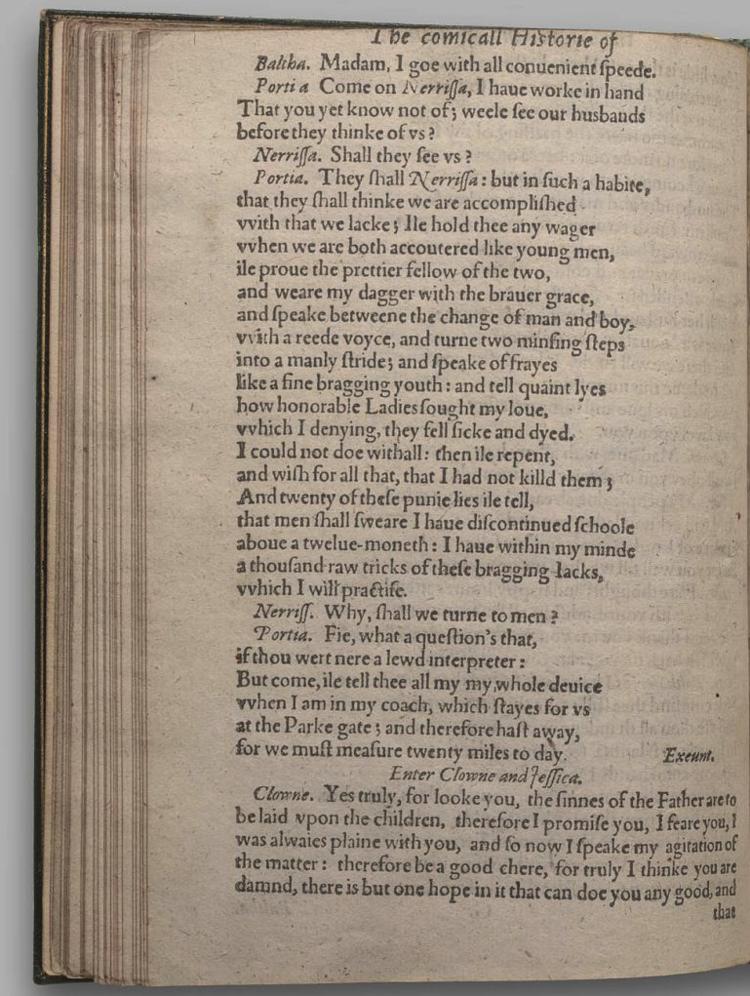 The comicall Historie of
Baltha. Madam, I goe with all conuenient ſpeede.
Portia Come on Nerriſſa, I haue worke in hand
That you yet know not of; weele ſee our husbands
before they thinke of vs?
Nerriſſa. Shall they ſee vs?
Portia. They ſhall Nerriſſa: but in ſuch a habite,
that they ſhall thinke we are accompliſhed
vvith that we lacke; Ile hold thee any wager
vvhen we are both accoutered like young men,
ile proue the prettier fellow of the two,
and weare my dagger with the brauer grace,
and ſpeake betweene the change of man and boy,
vvith a reede voyce, and turne two minſing ſteps
into a manly ſtride; and ſpeake of frayes
like a fine bragging youth: and tell quaint lyes
how honorable Ladies ſought my loue,
vvhich I denying, they fell ſicke and dyed.
I could not doe withall: then ile repent,
and wiſh for all that, that I had not killd them;
And twenty of theſe punie lies ile tell,
that men ſhall ſweare I haue diſcontinued ſchoole
aboue a twelue-moneth: I haue within my minde
a thouſand raw tricks of theſe bragging Iacks,
vvhich I will practiſe.
Nerriſſ. Why, ſhall we turne to men?
Portia. Fie, what a queſtion's that,
if thou wert nere a lewd interpreter:
But come, ile tell thee all my my whole deuice
vvhen I am in my coach, which ſtayes for vs
at the Parke gate; and therefore haſt away,
for we muſt meaſure twenty miles to day. Exeunt.
Enter Clowne and Jeſſica.
Clowne. Yes truly, for looke you, the ſinnes of the Father are to
be laid vpon the children, therefore I promiſe you, I feare you, I
was alwaies plaine with you, and ſo now I ſpeake my agitation of
the matter: therefore be a good chere, for truly I thinke you are
damnd, there is but one hope in it that can doe you any good, and
that